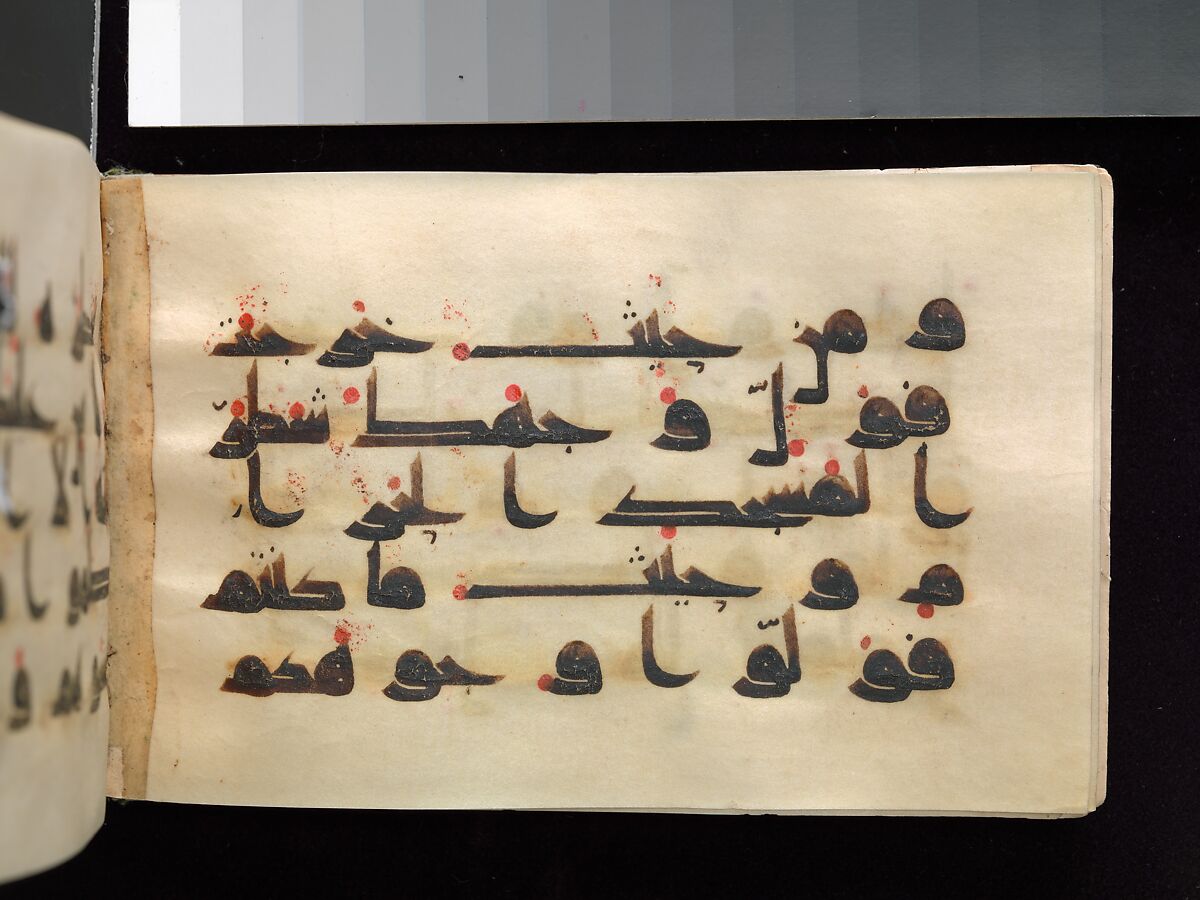 ومن حيث خرجت
فول وجهك شطر
المسجد الحرا
م وحيث ما كنتم
فولوا وجوهكم